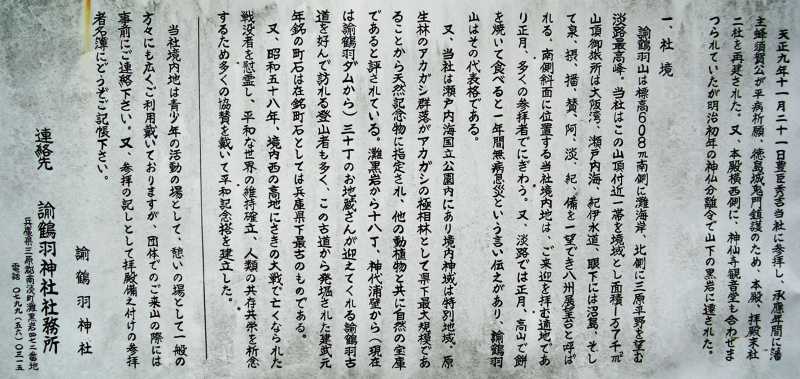 天正九年十一月二十一日豊臣秀吉当社に参拝し、承応年間に藩
主蜂須賀公が平病祈願、徳島城鬼門鎮護のため、本殿、拝殿末社
二社を再建された。又、本殿横西側に、神仙寺観音堂も合わせま
つられていたが明治初年の神仏分離令で山下の黒岩に遷された。
一、社境
諭鶴羽山は標高608m南側に灘海岸、北側に三原平野を望む
淡路最高峰。当社はこの山頂付近一帯を境域とし面積一万7千㎡
山頂御旅所は大阪湾、瀬戸内海、紀伊水道、眼下には沼島、そし
て泉、摂、播、賛、阿、淡、紀、備を一望でき八州展望台と呼ば
れる。南側斜面に位置する当社境内地は、ご来迎を拝む適地であ
り正月、多くの参拝者でにぎわう。又、淡路では正月、高山で餅
を焼いて食べると一年間無病息災という言い伝えがあり、諭鶴羽
山はその代表格である。
又、当社は瀬戸内海国立公園内にあり境内神域は特別地域、原
生林のアカガシ群落がアカガシの極相林として県下最大規模であ
ることから天然記念物に指定され、他の動植物と共に自然の宝庫
であると評されている。灘黒岩から十八丁、神代浦壁から(現在
は諭鶴羽ダムから)三十丁のお地蔵さんが迎えてくれる諭鶴羽古
道を好んで訪れる登山者も多く、この古道から発掘された建武元
年銘の町石は在銘町石としては兵庫県下最古のものである。
又、昭和五十八年、境内西の高地にさきの大戦で亡くなられた
戦没者を慰霊し、平和な世界の維持確立、人類の共存共栄を祈念
するため多くの協賛を戴いて平和記念塔を建立した。
当社境内地は青少年の活動の場として、憩いの場として一般の
方々にも広くご利用戴いておりますが、団体でのご来山の際には
事前にご連絡下さい。又、参拝の記しとして拝殿備え付けの参拝
者名簿にどうぞご記帳下さい。
諭鶴羽神社
連絡先 諭鶴羽神社社務所
兵庫県三原郡南淡町灘黒岩四七二番地
電話 〇七九九(五六)〇三一五